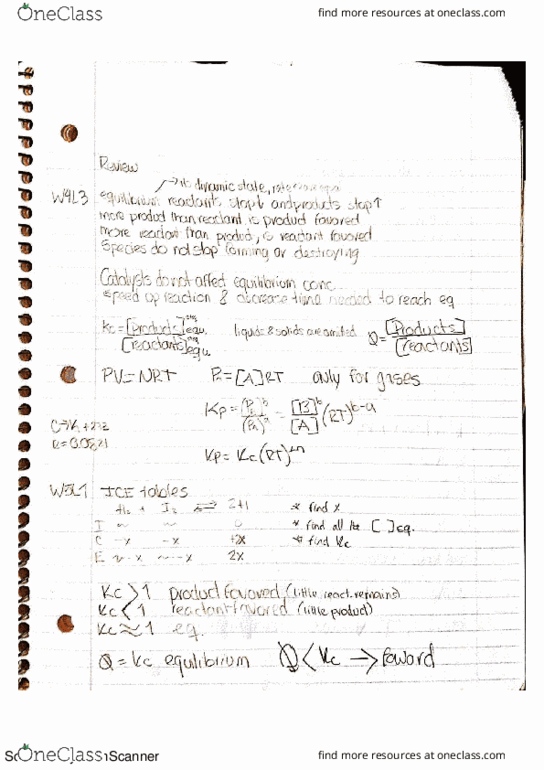 OneClass find more resources at oneclass.com
Review
→ its dynamic state, rate
W4L3 equilibrium reactants stop↓ and products stop↑
more product than reactant is product favored
more reactant than product, is reactant favored
Species do not stop forming or destroying
Catalysts do not affect equilibrium conc
speed up reaction & decrease time needed to reach eq
Kc = [products] equ. liquids & solids are omitted Q = [Products]
[reactants] equ. [reactants]
PV = NRT Pₐ = [A]RT only for gases
Kp = (P)ᵇ / (Pₐ)ᵃ = [B]ᵇ / [A] (RT)ᵇ⁻ᵃ
C→K + 273
R = 0.0821
Kp = Kc(RT)^Δn
W5L1 ICE tables
H₂ + I₂ ⇌ 2HI * find x
I ~ ~ 0 * find all the [ ] eq.
C -x -x +2x * find Kc
E ~-x ~-x 2x
Kc > 1 product favored (little react. remains)
Kc < 1 reactant favored (little product)
Kc ≈ 1 eq.
Q = Kc equilibrium Q < Kc → foward
OneClass Scanner find more resources at oneclass.com